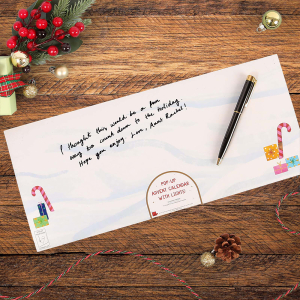 I thought this would be a fun
way to count down to the Holiday.
Hope you enjoy Love, Aunt Rachel!
POP-UP
ADVENT CALENDAR
WITH LIGHTS